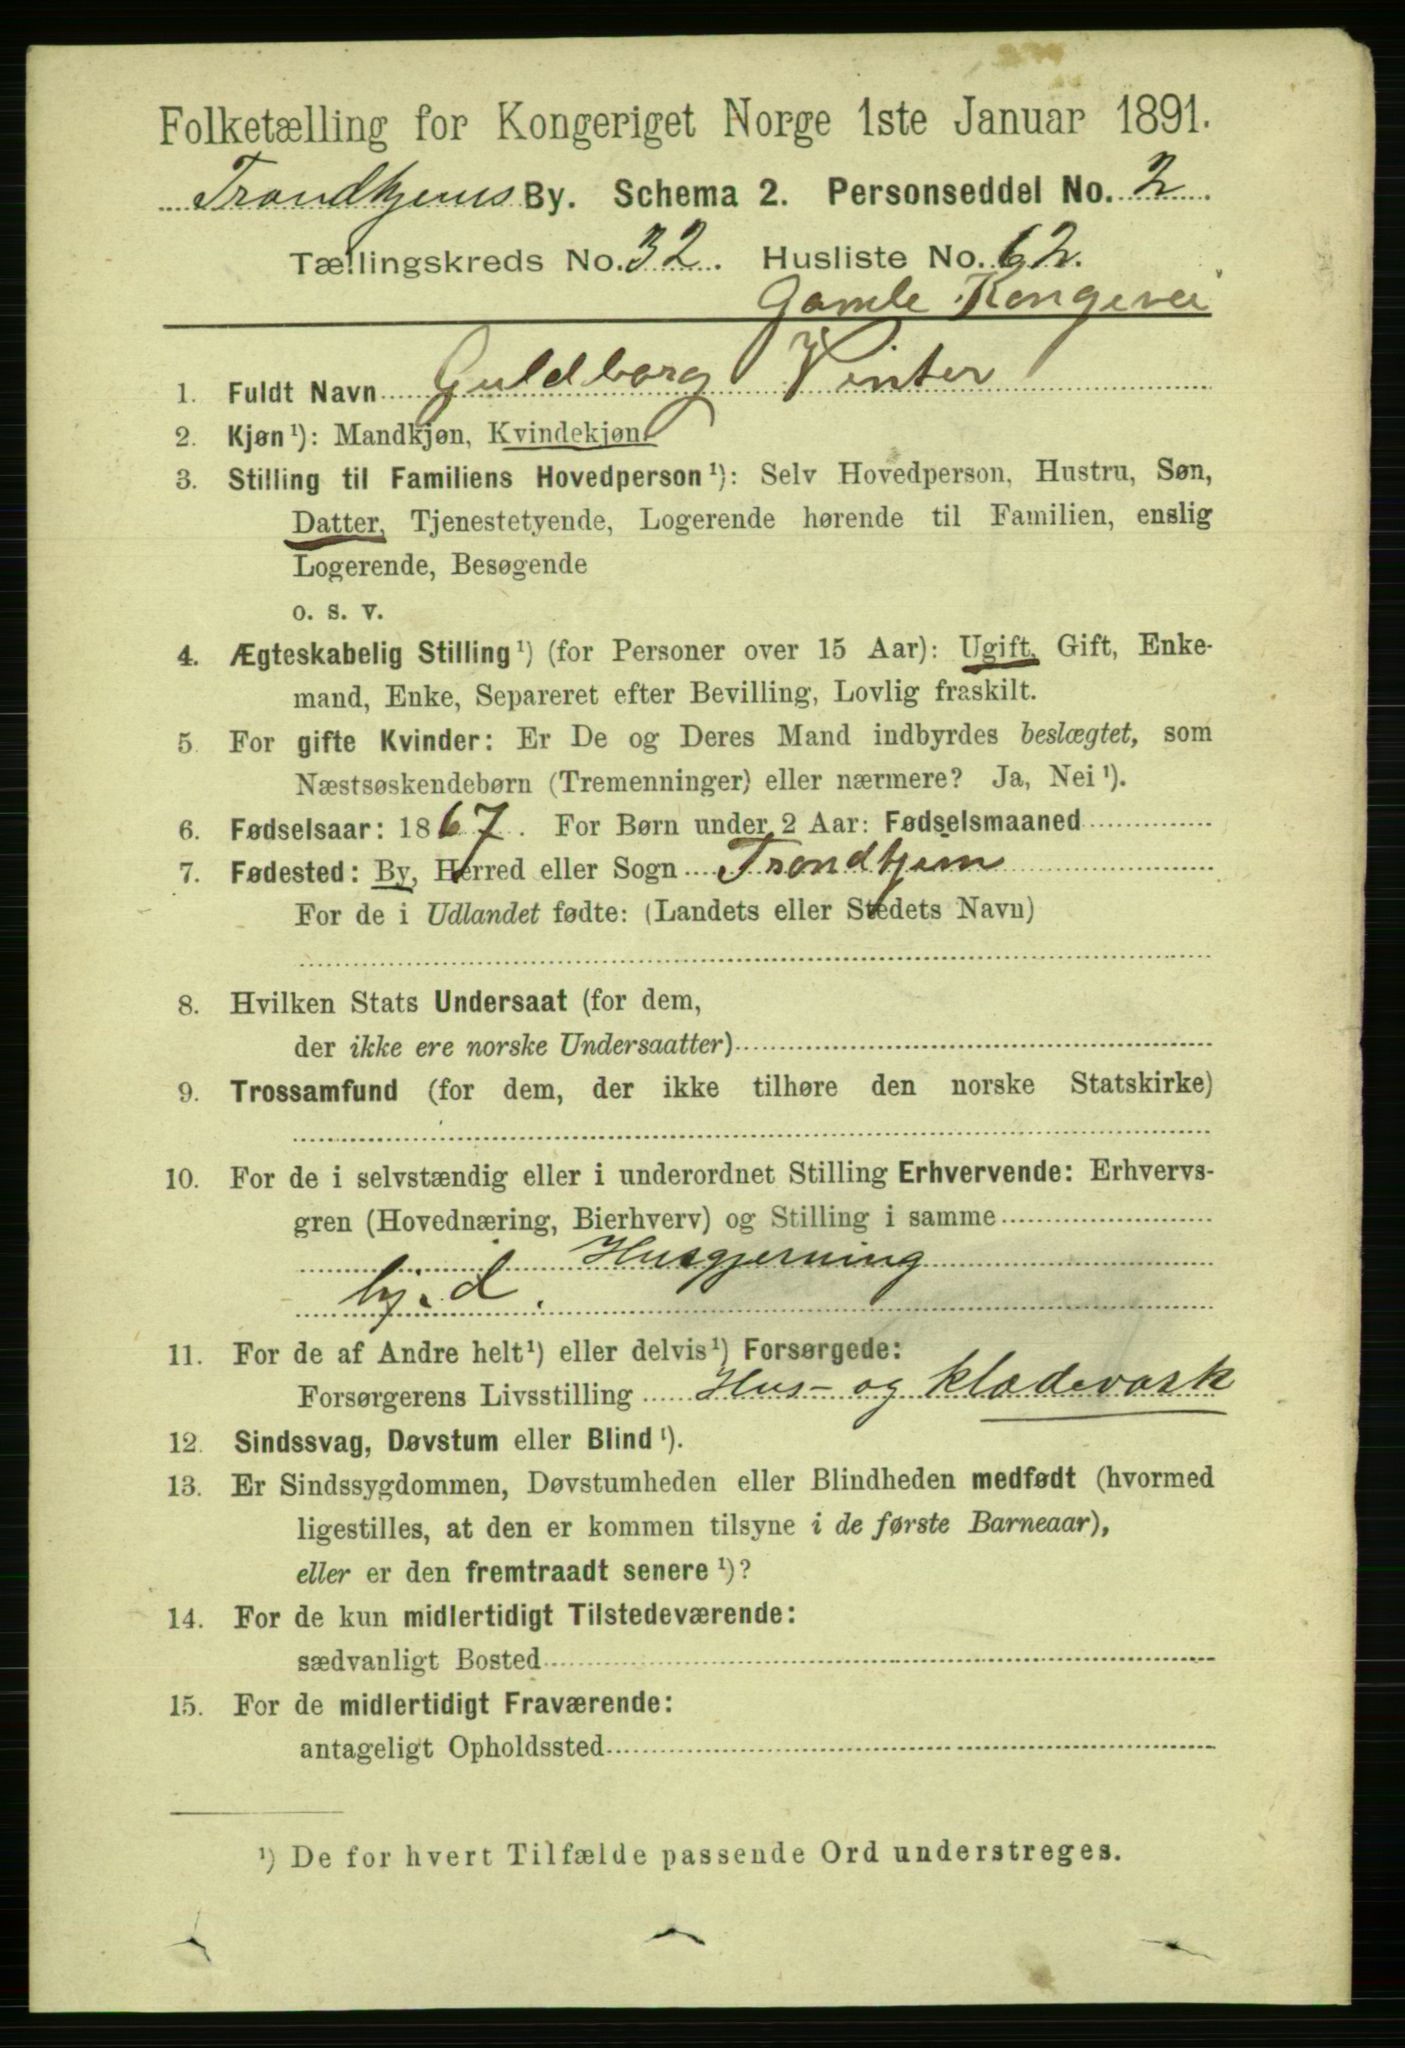 Folketælling for Kongeriget Norge 1ste Januar 1891.
Trondhjems By. Schema 2. Personseddel No. 2.
Tællingskreds No. 32. Husliste No. 62.
Gamle Kongevei
1. Fuldt Navn Guldborg Vinter
2. Kjøn¹): Mandkjøn, Kvindekjøn.
3. Stilling til Familiens Hovedperson¹): Selv Hovedperson, Hustru, Søn,
Datter, Tjenestetyende, Logerende hørende til Familien, enslig
Logerende, Besøgende
o. s. v.
4. Ægteskabelig Stilling¹) (for Personer over 15 Aar): Ugift, Gift, Enke-
mand, Enke, Separeret efter Bevilling, Lovlig fraskilt.
5. For gifte Kvinder: Er De og Deres Mand indbyrdes beslægtet, som
Næstsøskendebørn (Tremenninger) eller nærmere? Ja, Nei¹).
6. Fødselsaar: 1867. For Børn under 2 Aar: Fødselsmaaned
7. Fødested: By, Herred eller Sogn Trondhjem
For de i Udlandet fødte: (Landets eller Stedets Navn)
8. Hvilken Stats Undersaat (for dem,
der ikke ere norske Undersaatter)
9. Trossamfund (for dem, der ikke tilhøre den norske Statskirke)
10. For de i selvstændig eller i underordnet Stilling Erhvervende: Erhvervs-
gren (Hovednæring, Bierhverv) og Stilling i samme
Husgjerning
hj. d.
11. For de af Andre helt¹) eller delvis¹) Forsørgede:
Forsørgerens Livsstilling Hus- og klædevask
12. Sindssvag, Døvstum eller Blind¹).
13. Er Sindssygdommen, Døvstumheden eller Blindheden medfødt (hvormed
ligestilles, at den er kommen tilsyne i de første Barneaar),
eller er den fremtraadt senere¹)?
14. For de kun midlertidigt Tilstedeværende:
sædvanligt Bosted
15. For de midlertidigt Fraværende:
antageligt Opholdssted
¹) De for hvert Tilfælde passende Ord understreges.